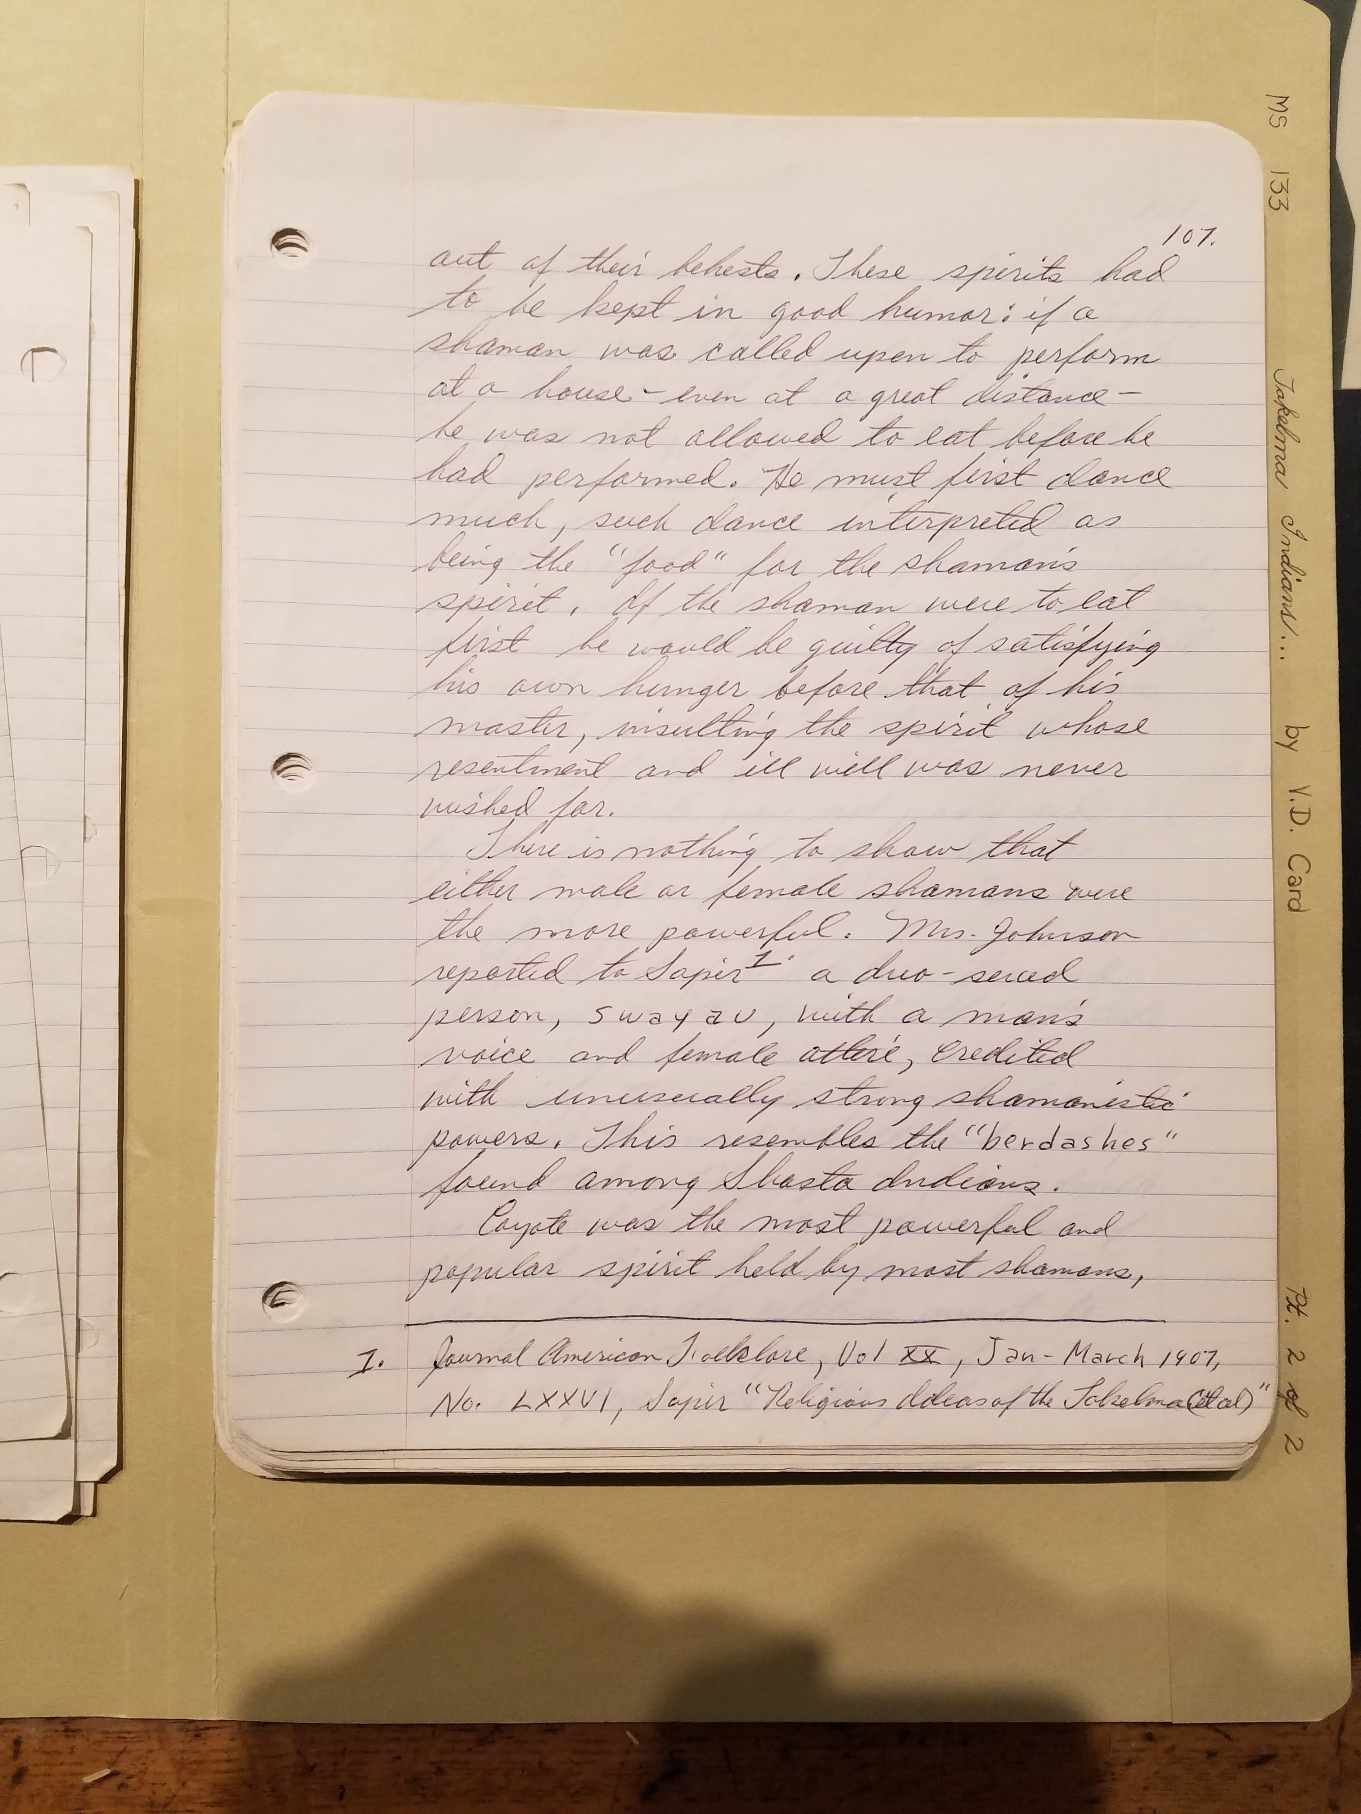 107.
out of their behests. These spirits had
to be kept in good humor: if a
shaman was called upon to perform
at a house - even at a great distance -
he was not allowed to eat before he
had performed. He must first dance
much, such dance interpreted as
being the "food" for the shaman's
spirit. If the shaman were to eat
first he would be guilty of satisfying
his own hunger before that of his
master, insulting the spirit whose
resentment and ill will was never
wished for.
There is nothing to show that
either male or female shamans were
the more powerful. Mrs. Johnson
reported to Sapir 1. a duo-sexed
person, swayau, with a man's
voice and female attire, credited
with unusually strong shamanistic
powers. This resembles the "berdashes"
found among Shasta Indians.
Coyote was the most powerful and
popular spirit held by most shamans,
1. Journal American Folklore, Vol XX, Jan - March 1907,
No. LXXVI, Sapir "Religious Ideas of the Takelma (et al)"
MS 133 Takelma Indians... by V.D. Card Pt. 2 of 2